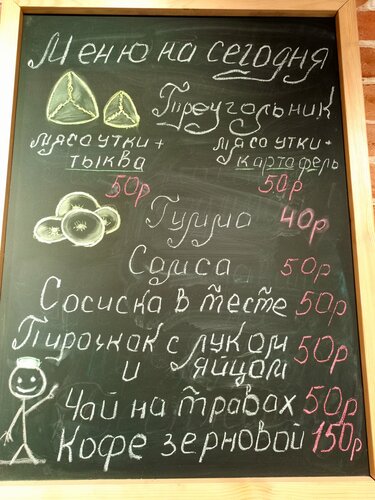 Меню на сегодня
Треугольник
мясо утки + мясо утки +
тыква картафель
50р 50р
Гумма 40р
Самса 50р
Сосиска в тесте 50р
Пирожок с луком
и яйцом 50р
Чай на травах 50р
Кофе зерновой 150р